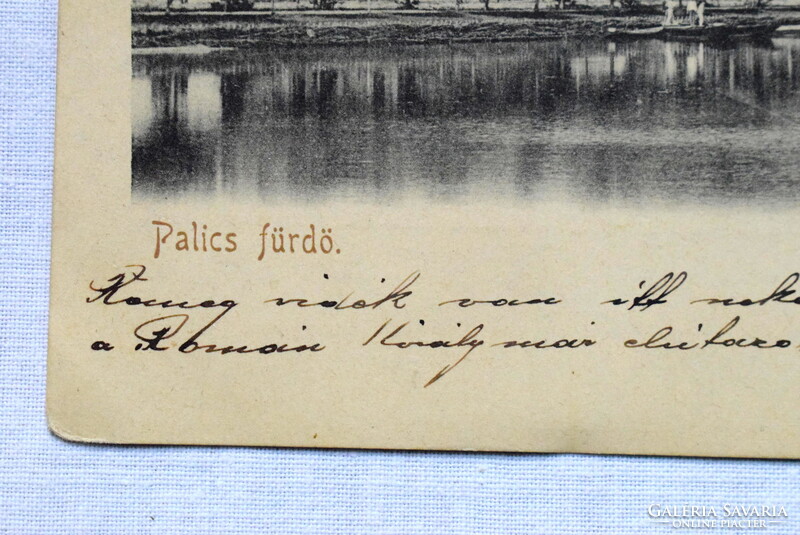 Palics fürdö.
vidék van itt neke
a Román Király már elutazo
GALÉRIA SAVARIA
ONLINE PIACTÉR